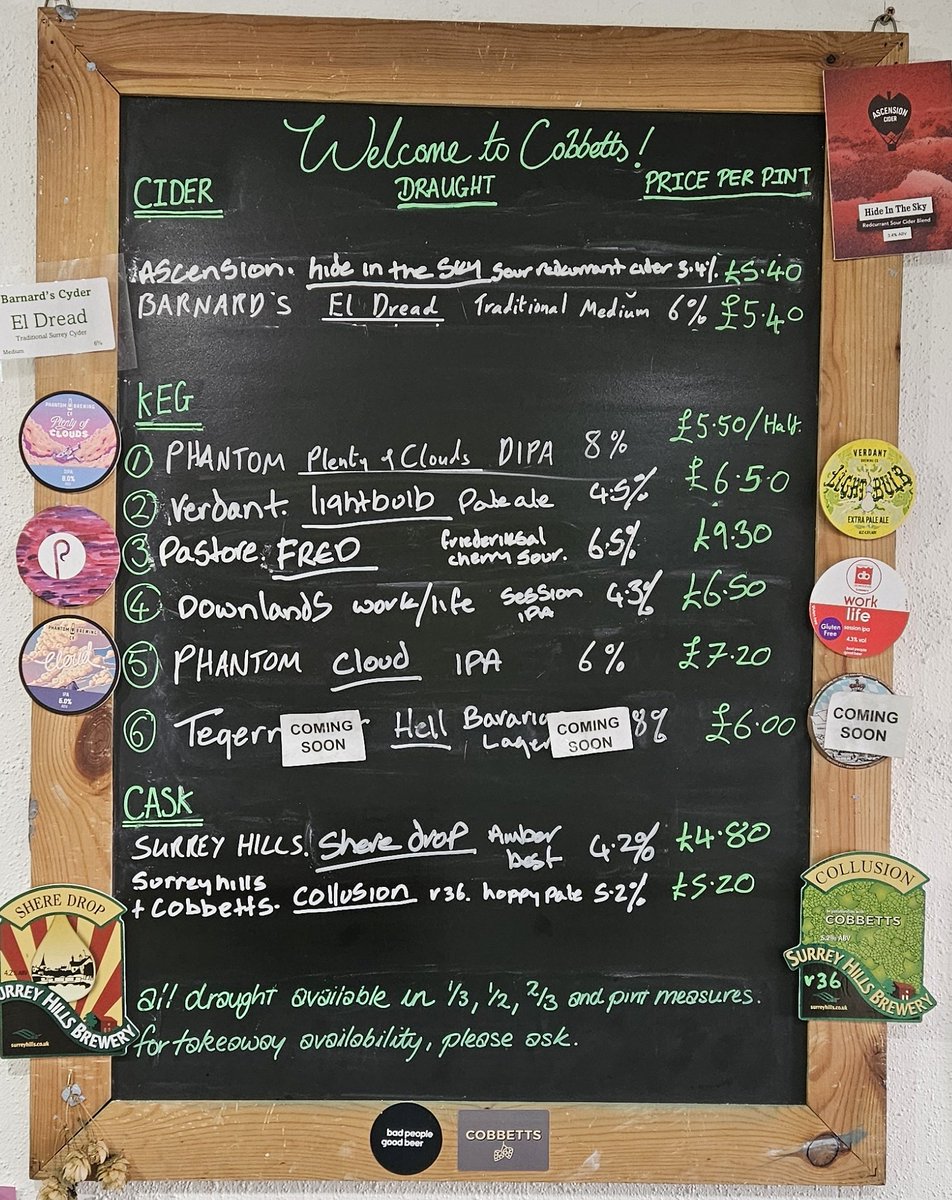 Welcome to Cobbetts!
CIDER DRAUGHT PRICE PER PINT
Ascension. hide in the Sky sour redcurrant cider 3.4% £5.40
BARNARD'S El Dread Traditional Medium 6% £5.40
KEG
£5.50/Half.
① PHANTOM Plenty of Clouds DIPA 8%
② Verdant. lightbulb Pale ale 4.5% £6.50
③ Pastore. FRED friedrikesal cherry sour. 6.5% £9.30
④ DOWNLANDS work/life Session IPA 4.3% £6.50
⑤ PHANTOM Cloud IPA 6% £7.20
⑥ Tegern COMING SOON Hell Bavaria Lager COMING SOON 8% £6.00
CASK
SURREY HILLS. Shere drop Amber best 4.2% £4.80
Surrey hills
+ Cobbetts. Collusion r36. hoppy pale 5.2% £5.20
all draught available in 1/3, 1/2, 2/3 and pint measures.
for takeaway availability, please ask.
Barnard's Cyder
El Dread
Traditional Surrey Cyder
Medium 6%
PHANTOM BREWING CO
Plenty of
CLOUDS
DIPA
8.0%
ABV
PHANTOM BREWING CO
Cloud
IPA
6.0%
ABV
SHERE DROP
4.2% ABV
SURREY HILLS BREWERY
surreyhills.co.uk
ASCENSION
CIDER
Hide In The Sky
Redcurrant Sour Cider Blend
3.4% ABV
VERDANT
BREWING CO.
LIGHT BULB
EXTRA PALE ALE
db
work
life
Gluten
Free
session ipa
4.3% vol
bad people
good beer
COMING
SOON
COLLUSION
COBBETTS
5.2% ABV
SURREY HILLS BREWERY
r36
surreyhills.co.uk
bad people
good beer
COBBETTS